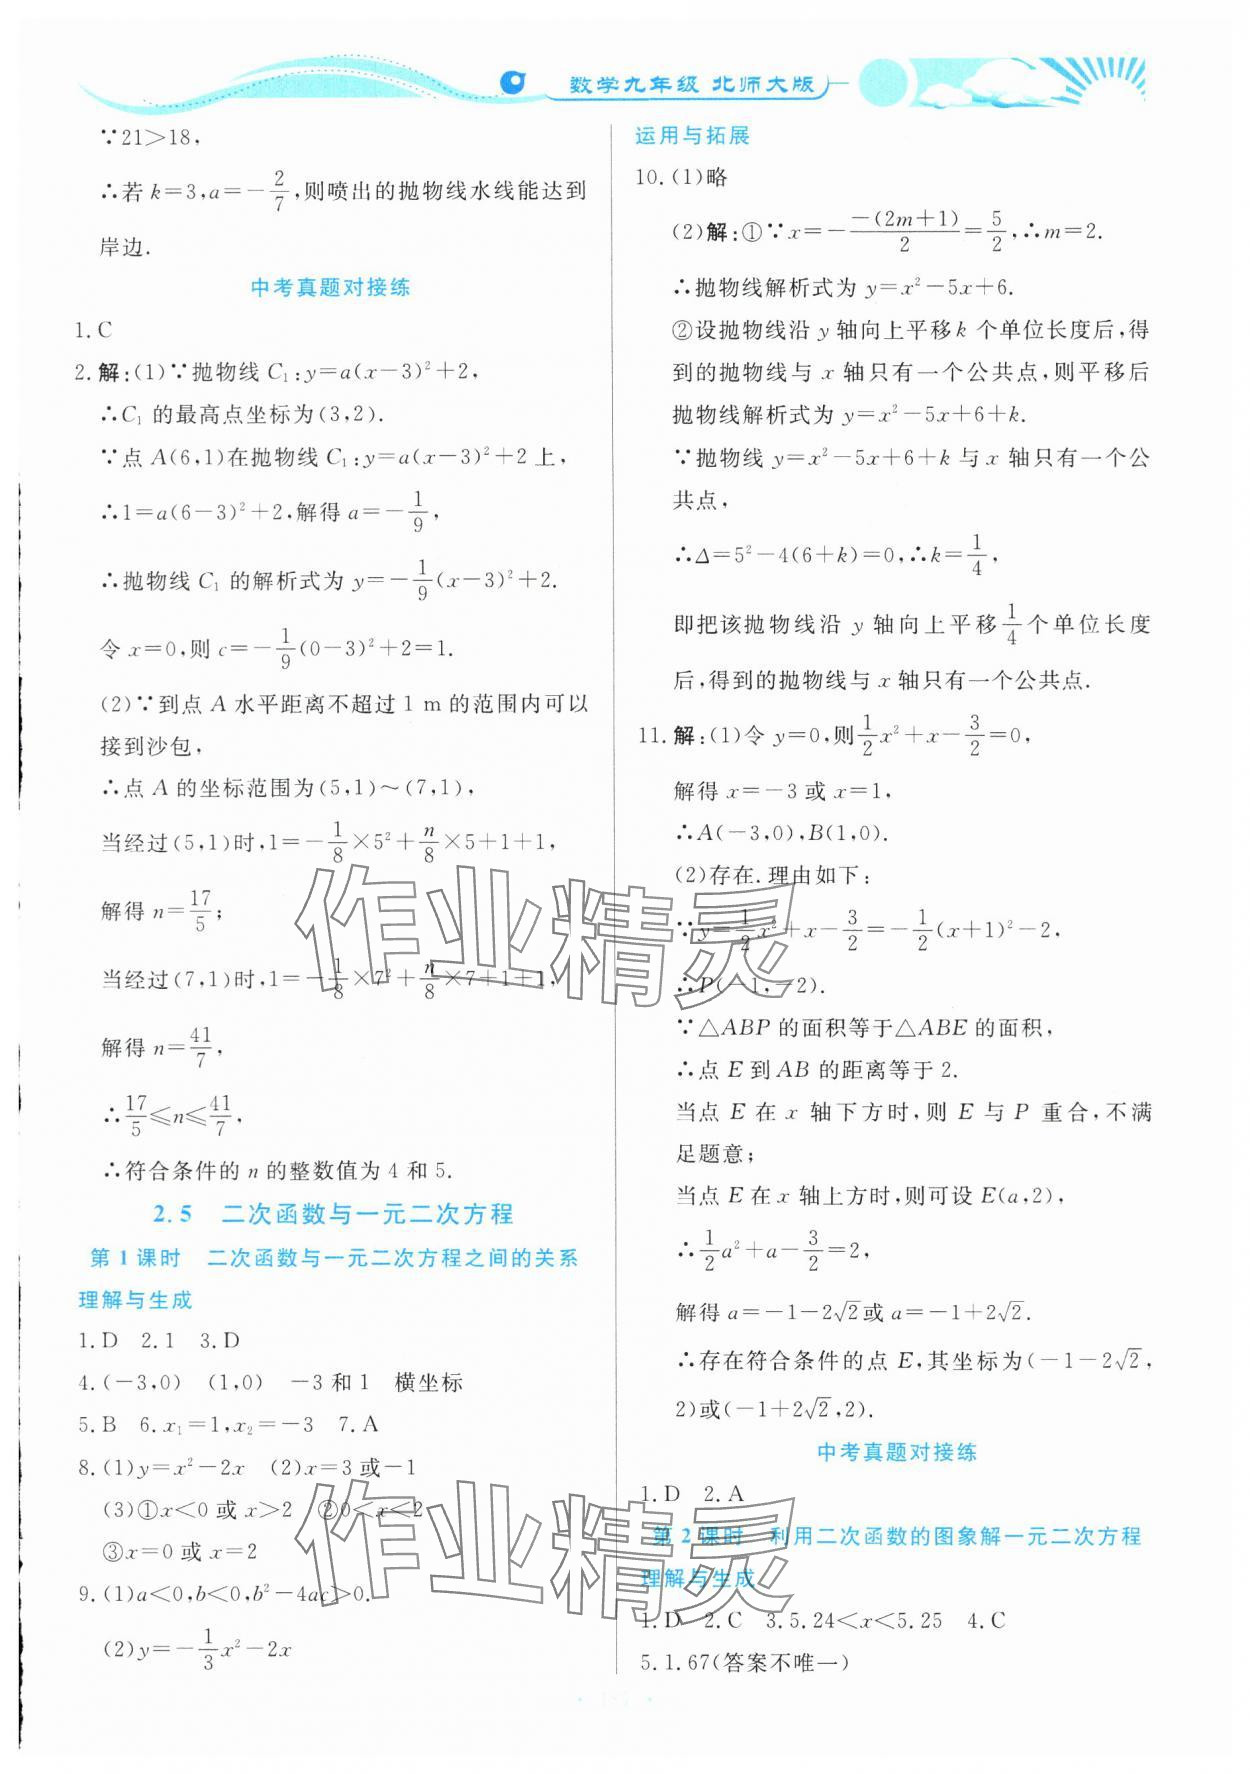 数学九年级 北师大版
∵21>18,
∴若 k=3,a=-2/7,则喷出的抛物线水线能达到
岸边.
中考真题对接练
1.C
2.解:(1)∵抛物线 C₁:y=a(x-3)²+2,
∴C₁ 的最高点坐标为(3,2).
∵点 A(6,1)在抛物线 C₁:y=a(x-3)²+2 上,
∴1=a(6-3)²+2,解得 a=-1/9,
∴抛物线 C₁ 的解析式为 y=-1/9(x-3)²+2.
令 x=0,则 c=-1/9(0-3)²+2=1.
(2)∵到点 A 水平距离不超过 1 m 的范围内可以
接到沙包,
∴点 A 的坐标范围为(5,1)～(7,1),
当经过(5,1)时,1=-1/8×5²+n/8×5+1+1,
解得 n=17/5;
当经过(7,1)时,1=-1/8×7²+n/8×7+1+1,
解得 n=41/7,
∴17/5≤n≤41/7,
∴符合条件的 n 的整数值为 4 和 5.
2.5 二次函数与一元二次方程
第 1 课时 二次函数与一元二次方程之间的关系
理解与生成
1.D 2.1 3.D
4.(-3,0) (1,0) -3 和 1 横坐标
5.B 6.x₁=1,x₂=-3 7.A
8.(1)y=x²-2x (2)x=3 或-1
(3)①x<0 或 x>2 ②0<x<2
③x=0 或 x=2
9.(1)a<0,b<0,b²-4ac>0.
(2)y=-1/3x²-2x
运用与拓展
10.(1)略
(2)解:①∵x=--(2m+1)/2=5/2,∴m=2.
∴抛物线解析式为 y=x²-5x+6.
②设抛物线沿 y 轴向上平移 k 个单位长度后,得
到的抛物线与 x 轴只有一个公共点,则平移后
抛物线解析式为 y=x²-5x+6+k.
∵抛物线 y=x²-5x+6+k 与 x 轴只有一个公
共点,
∴Δ=5²-4(6+k)=0,∴k=1/4,
即把该抛物线沿 y 轴向上平移1/4个单位长度
后,得到的抛物线与 x 轴只有一个公共点.
11.解:(1)令 y=0,则1/2x²+x-3/2=0,
解得 x=-3 或 x=1,
∴A(-3,0),B(1,0).
(2)存在.理由如下:
∵y=1/2x²+x-3/2=-1/2(x+1)²-2,
∴P(-1,-2).
∵△ABP 的面积等于△ABE 的面积,
∴点 E 到 AB 的距离等于 2.
当点 E 在 x 轴下方时,则 E 与 P 重合,不满
足题意;
当点 E 在 x 轴上方时,则可设 E(a,2),
∴1/2a²+a-3/2=2,
解得 a=-1-2√2或 a=-1+2√2.
∴存在符合条件的点 E,其坐标为(-1-2√2,
2)或(-1+2√2,2).
中考真题对接练
1.D 2.A
第 2 课时 利用二次函数的图象解一元二次方程
理解与生成
1.D 2.C 3.5.24<x<5.25 4.C
5.1.67(答案不唯一)
作业精灵
作业精灵